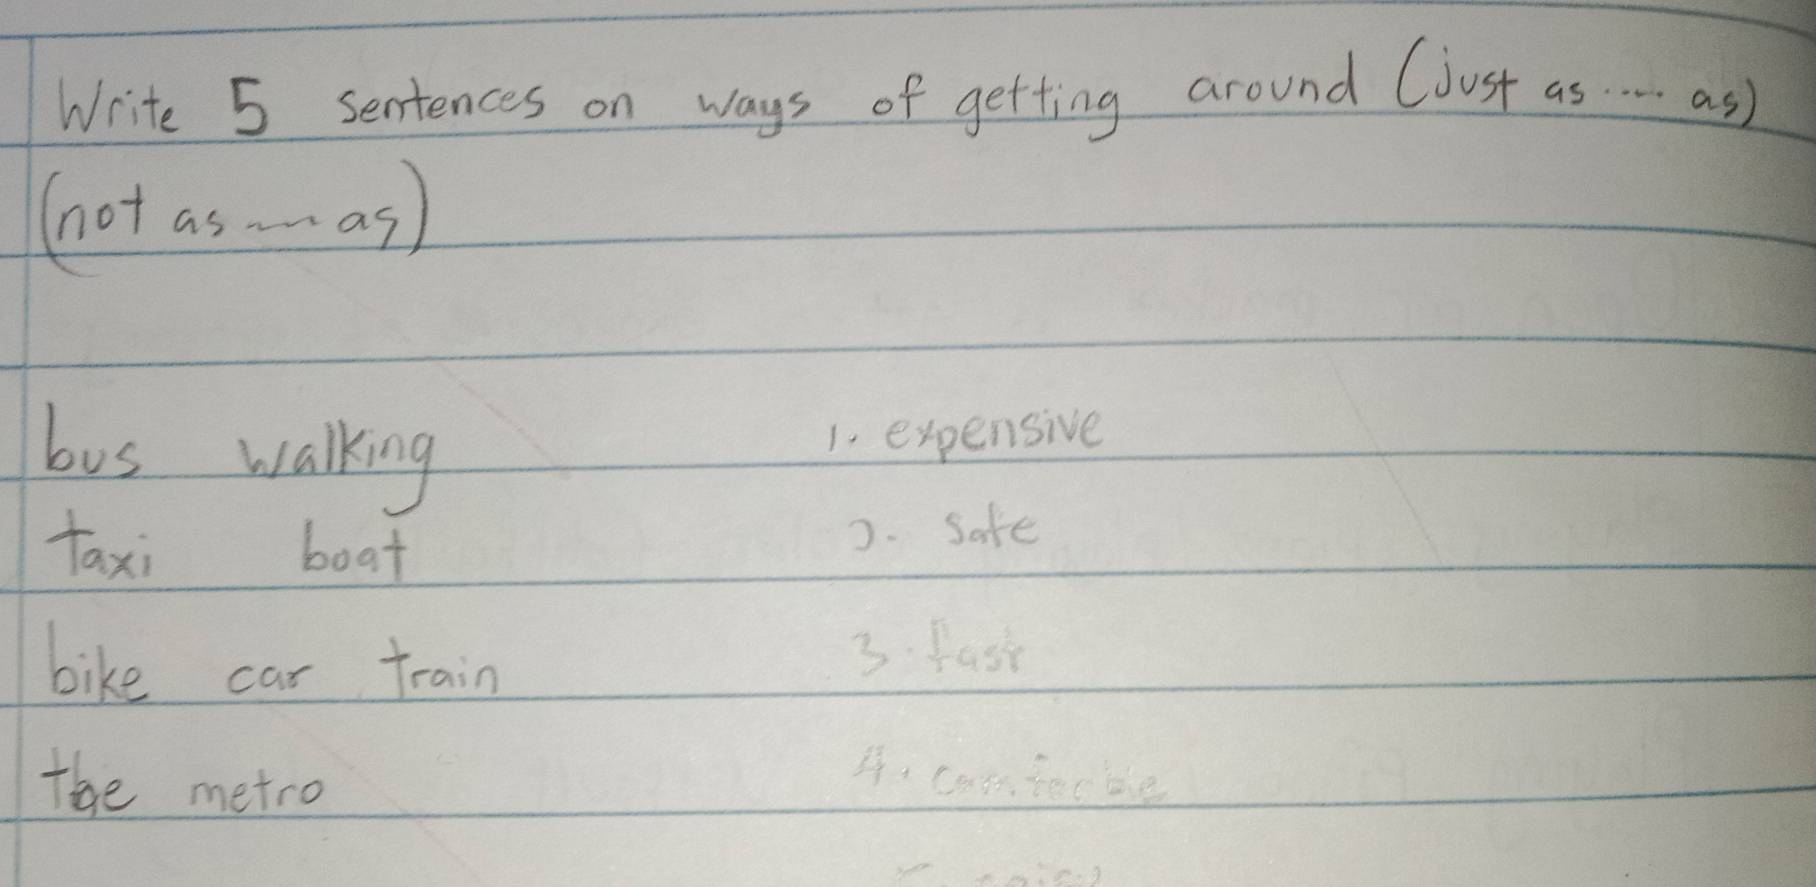 Write 5 sentences on ways of getting around (just as ..... as)
(not as ~~ as)
bus walking 1. expensive
taxi boat 2. safe
bike car train 3. fast
the metro 4. comforble